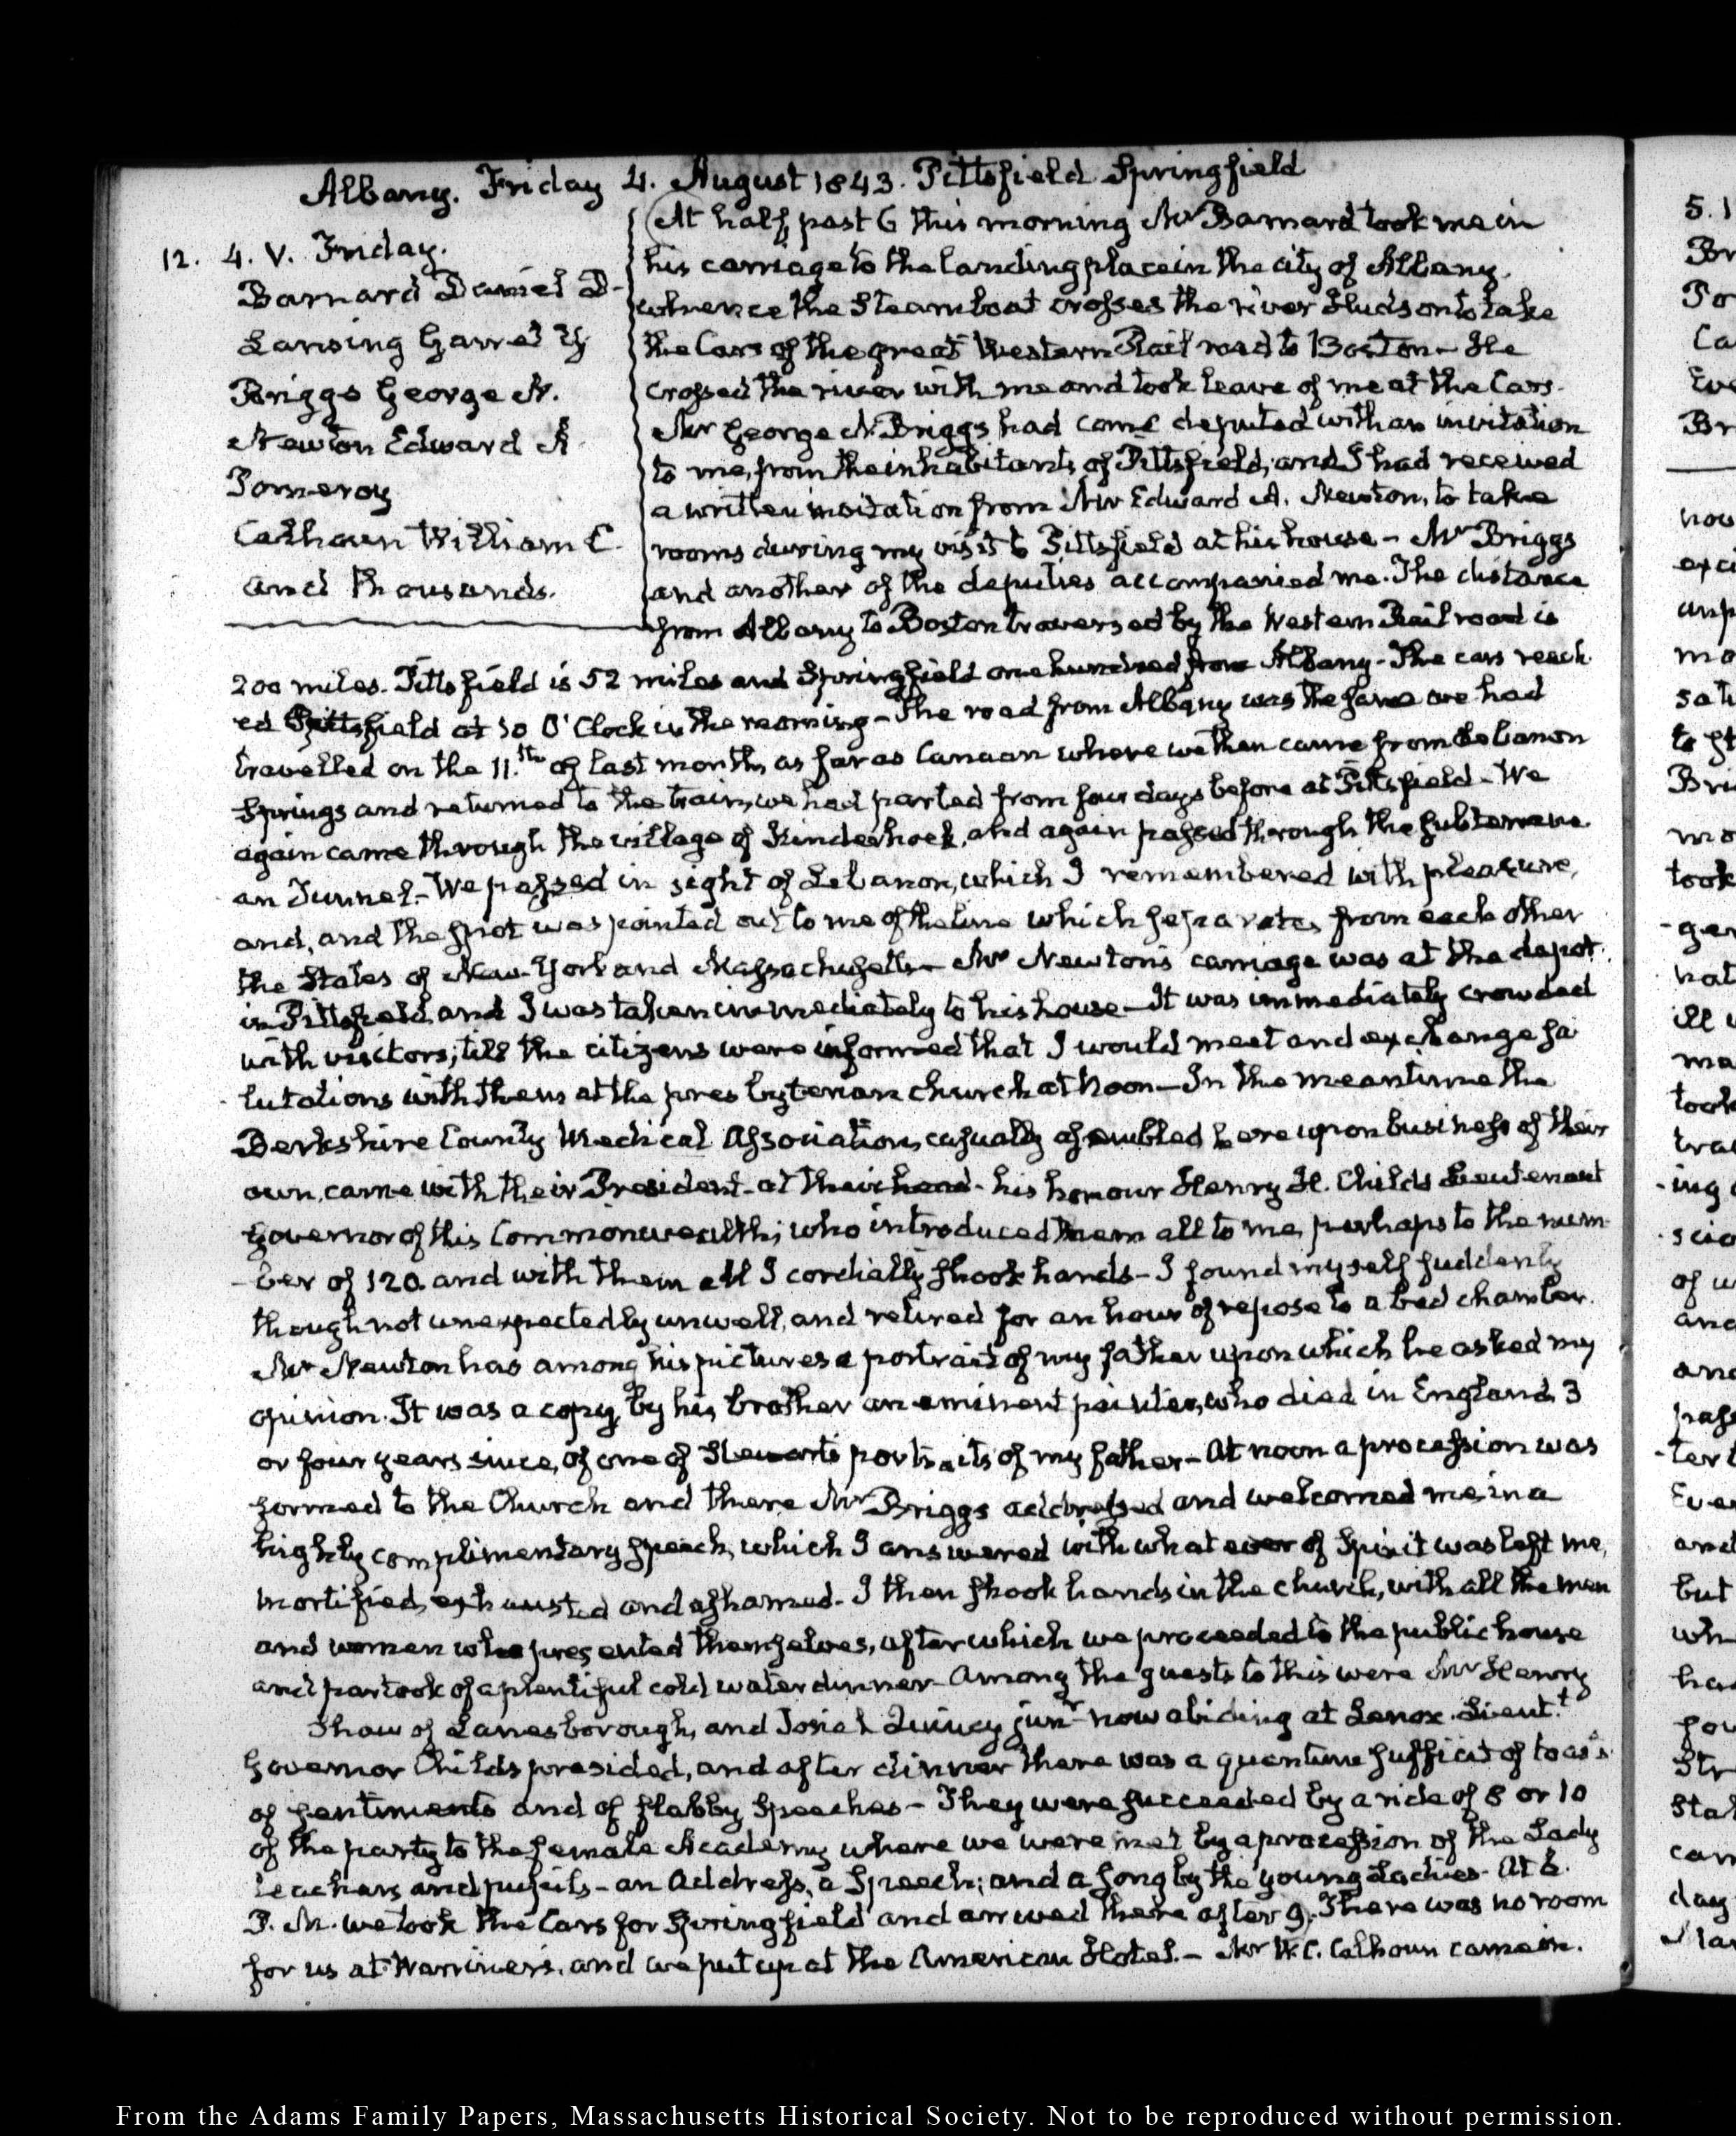 Albany. Friday 4. August 1843. Pittsfield Springfield
12. 4. V. Friday.
Barnard Daniel D-
Lansing Garret Y
Briggs George N.
Newton Edward A
Pomeroy
Calhoun William C.
and Thousands.
At half past 6 this morning Mr Barnard took me in
his carriage to the landing place in the city of Albany.
whence the Steamboat crosses the river Hudson to take
the Cars of the great Western Rail road to Boston - He
crossed the river with me and took leave of me at the Cars.
Mr George N. Briggs had come deputed with an invitation
to me, from the inhabitants of Pittsfield, and I had received
a written invitation from Mr Edward A. Newton, to take
rooms during my visit to Pittsfield at his house - Mr Briggs
and another of the deputies accompanied me. The distance
from Albany to Boston traversed by the Western Rail road is
200 miles. Pittsfield is 52 miles and Springfield one hundred from Albany - The cars reach
ed Pittsfield at 10 O'Clock in the morning - The road from Albany was the same we had
travelled on the 11.th of last month, as far as Canaan where we then came from Lebanon
Springs and returned to the train, we had parted from four days before at Pittsfield - We
again came through the village of Kinderhook, and again passed through the subterrane
an Tunnel - We passed in sight of Lebanon, which I remembered with pleasure,
and, and the spot was pointed out to me of the line which separates from each other
the States of New-York and Massachusetts - Mr Newton's carriage was at the depot
in Pittsfield, and I was taken immediately to his house - It was immediately crowded
with visitors; till the citizens were informed that I would meet and exchange sa
lutations with them at the presbyterian church at Noon - In the meantime the
Berkshire County Medical Association, casually assembled here upon business of their
own, came with their President at their head - his honour Henry H. Childs Lieutenant
Governor of this Commonwealth; who introduced them all to me, perhaps to the num-
-ber of 120. and with them all I cordially shook hands - I found myself suddenly
though not unexpectedly unwell, and retired for an hour of repose to a bed chamber.
Mr Newton has among his pictures a portrait of my father upon which he asked my
opinion. It was a copy, by his brother an eminent painter, who died in England 3
or four years since, of one of Stewarts portraits of my father - At noon a procession was
formed to the Church and there Mr Briggs addressed and welcomed me in a
highly complimentary speech, which I answered with what ever of Spirit was left me,
mortified, exhausted and ashamed - I then shook hands in the church, with all the men
and women who presented themselves, after which we proceeded to the public house
and partook of a plentiful cold water dinner - Among the guests to this were Mr Henry
Shaw of Lanesborough, and Josiah Quincy junr now abiding at Lenox. Lieut.t
Governor Childs presided, and after dinner there was a quantum sufficit of toasts
of sentiments and of flabby Speeches - They were succeeded by a ride of 8 or 10
of the party to the female Academy where we were met by a procession of the Lady
teachers and pupils - an Address, a Speech; and a song by the young Ladies - At 6.
P. M. we took the Cars for Springfield and arrived there after 9. There was no room
for us at Warriner's. and we put up at the American Hotel. - Mr W. C. Calhoun came in.
5. 1
Br
Po
Ca
Eve
Br
how
exc
unp
mo
sat
to st
Bri
mo
took
-ger
hat
ill
ma
took
tra
-ing
scio
of u
and
and
pass
-ter
Eve
and
but
wh
ha
fou
Str
Sta
can
day
Mar
From the Adams Family Papers, Massachusetts Historical Society. Not to be reproduced without permission.